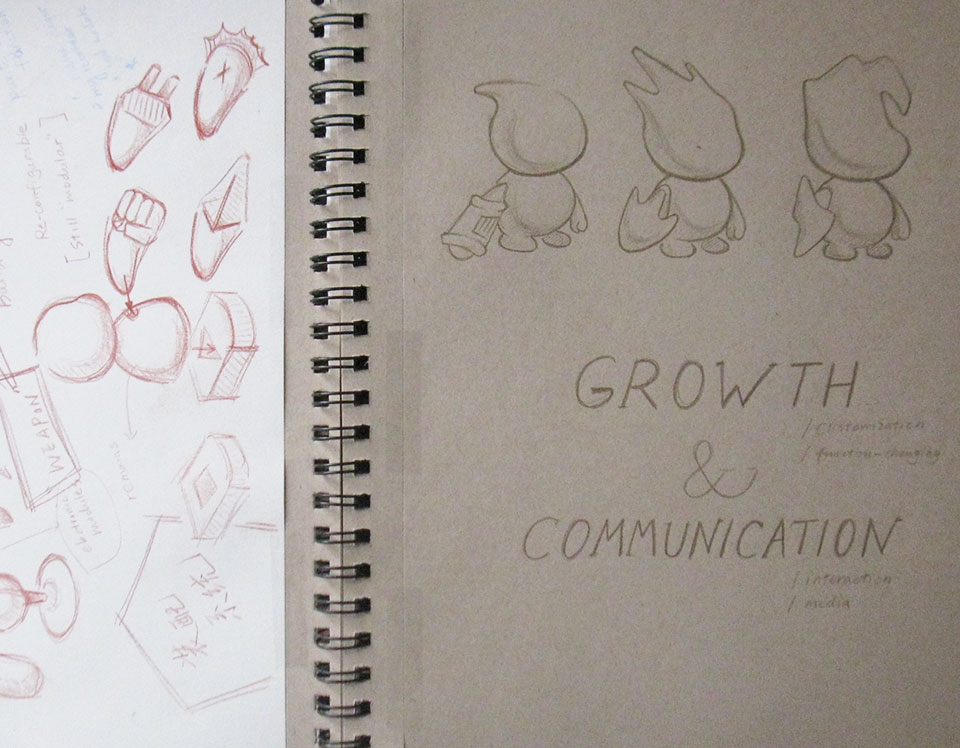 Re-configurable
[still 'modular']
WEAPON
electronic
remains
装配
系统
GROWTH
/ customization
/ function-changing
&
COMMUNICATION
/ interaction
/ media